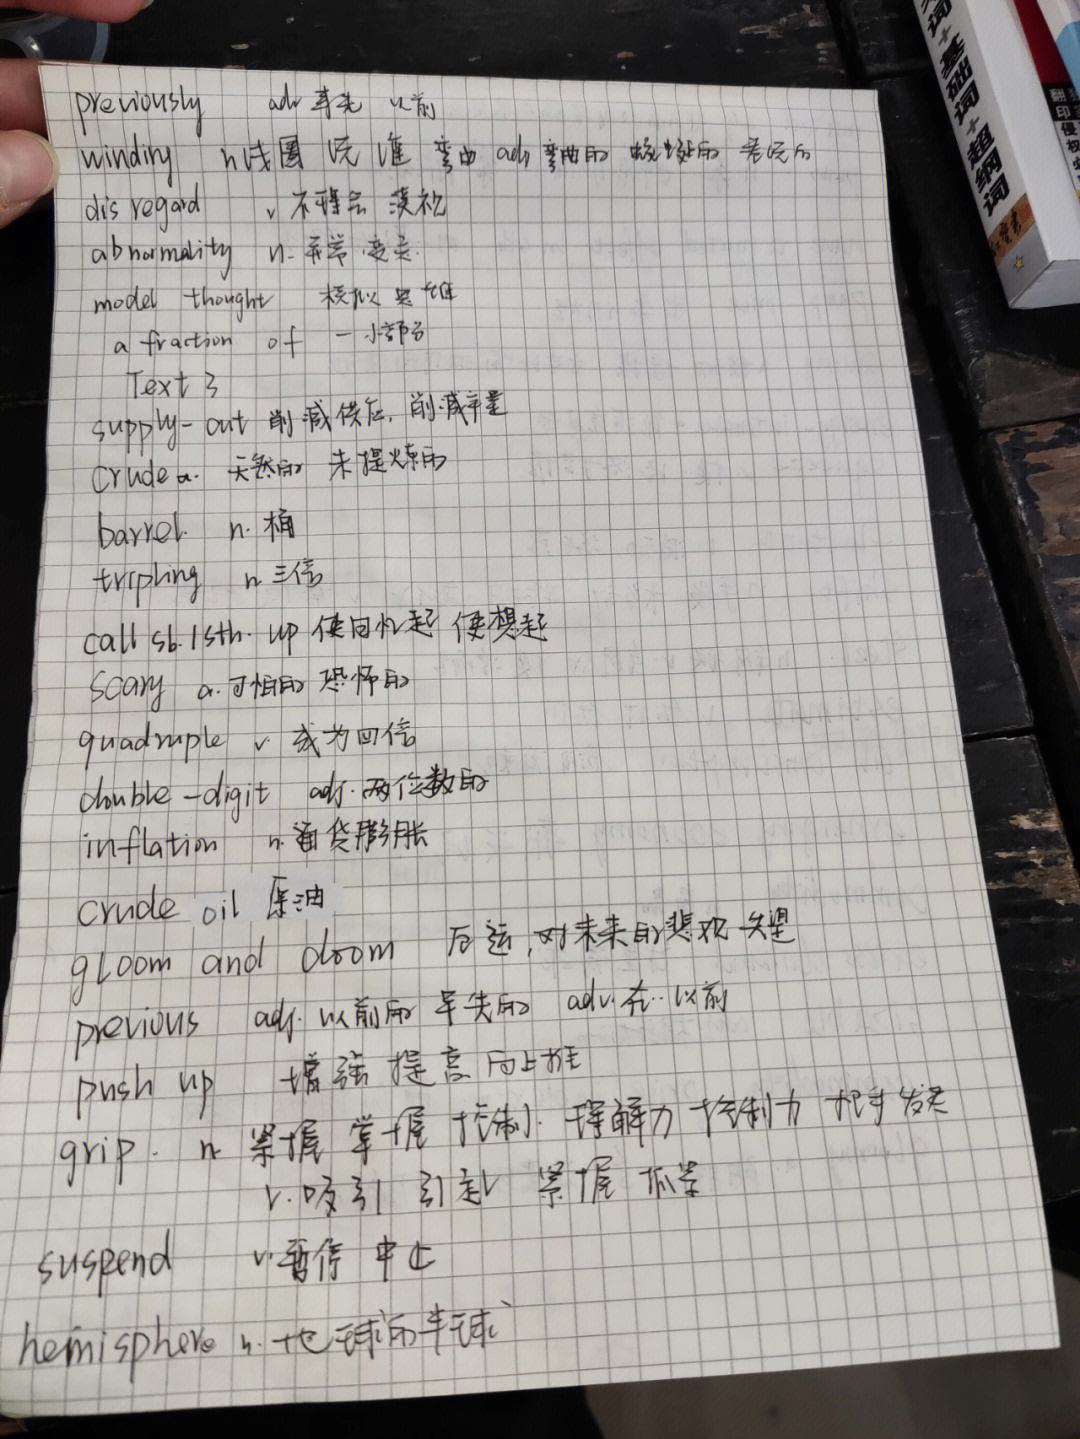 previously adv 事先 以前
winding n 线圈 弯曲 adj 弯曲的 蜿蜒的
disregard v 不理会 漠视
abnormality n. 异常 变态
model thought 模拟思维
a fraction of 一小部分
Text 3
supply-cut 削减供应, 削减产量
crude a. 天然的 未提炼的
barrel. n. 桶
tripling n 三倍
call sb./sth. up 使回忆起 使想起
scary a. 可怕的 恐怖的
quadruple v 成为四倍
double-digit adj. 两位数的
inflation n. 通货膨胀
crude oil 原油
gloom and doom 厄运, 对未来的悲观失望
previous adj. 以前的 早先的 adv. 在…以前
push up 增强 提高 向上推
grip. n. 紧握 掌握 控制. 理解力 控制力 把手 发夹
v. 吸引 引起v 紧握 抓紧
suspend v. 暂停 中止
hemisphere n. 地球的半球
词+基础词+超纲词
红宝书
翻印
侵权